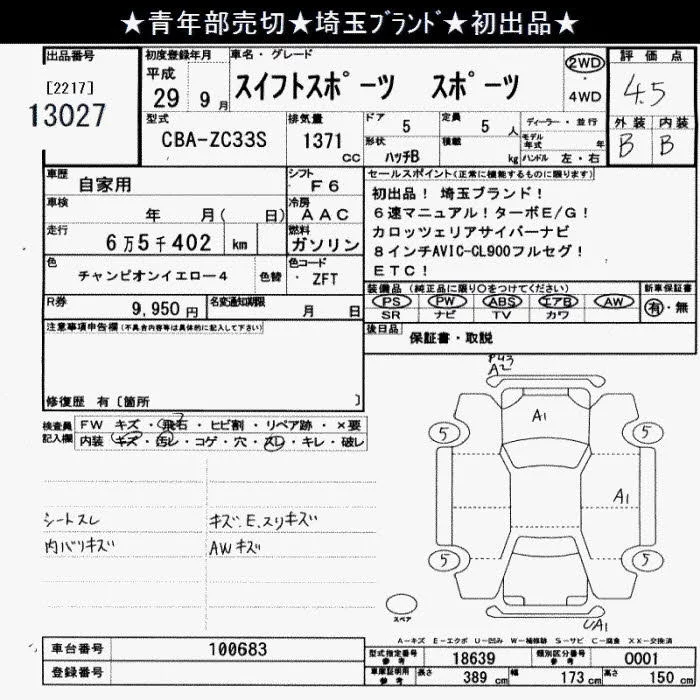 ★青年部売切★埼玉ブランド★初出品★
出品番号
[2217]
13027
初度登録年月
平成
29 9月
車名・グレード
スイフトスポーツ スポーツ
2WD
・
4WD
評価点
4.5
外装 内装
B B
型式
CBA-ZC33S
排気量
1371
CC
ドア
5
定員
5 人
形状
ハッチB
積載
kg
ディーラー・並行
モデル年式 年
ハンドル 左・右
車歴
自家用
シフト
F6
車検
年 月( 日)
冷房
AAC
走行
6万5千402 km
燃料
ガソリン
色
チャンピオンイエロー4
色替
色コード
ZFT
R券
9,950円
名変通知期限
月 日
セールスポイント(正常に機能するものに限ります)
初出品! 埼玉ブランド!
6速マニュアル!ターボE/G!
カロッツェリアサイバーナビ
8インチAVIC-CL900フルセグ!
ETC!
装備品(純正品に限り○をつけてください)
PS PW ABS エアB AW
SR ナビ TV カワ
新車保証書
有・無
後日品
保証書・取説
注意事項申告欄(不具合内容等は具体的に記入して下さい)
修復歴 有〔箇所 〕
検査員
記入欄
FW キズ・飛石・ヒビ割・リペア跡・×要
内装 キズ・汚レ・コゲ・穴・スレ・キレ・破レ
シートスレ
内バリキズ
キズ、E、スリキズ
AWキズ
A2
A1
5 5
A1
5 5
スペア
UA1
A-キズ E-エクボ U-凹み W-補修跡 S-サビ C-腐食 XX-交換済
車台番号
100683
登録番号
型式指定番号
参考
18639
類別区分番号
参考
0001
車庫証明用
参考
長さ 389 cm 幅 173 cm 高さ 150 cm